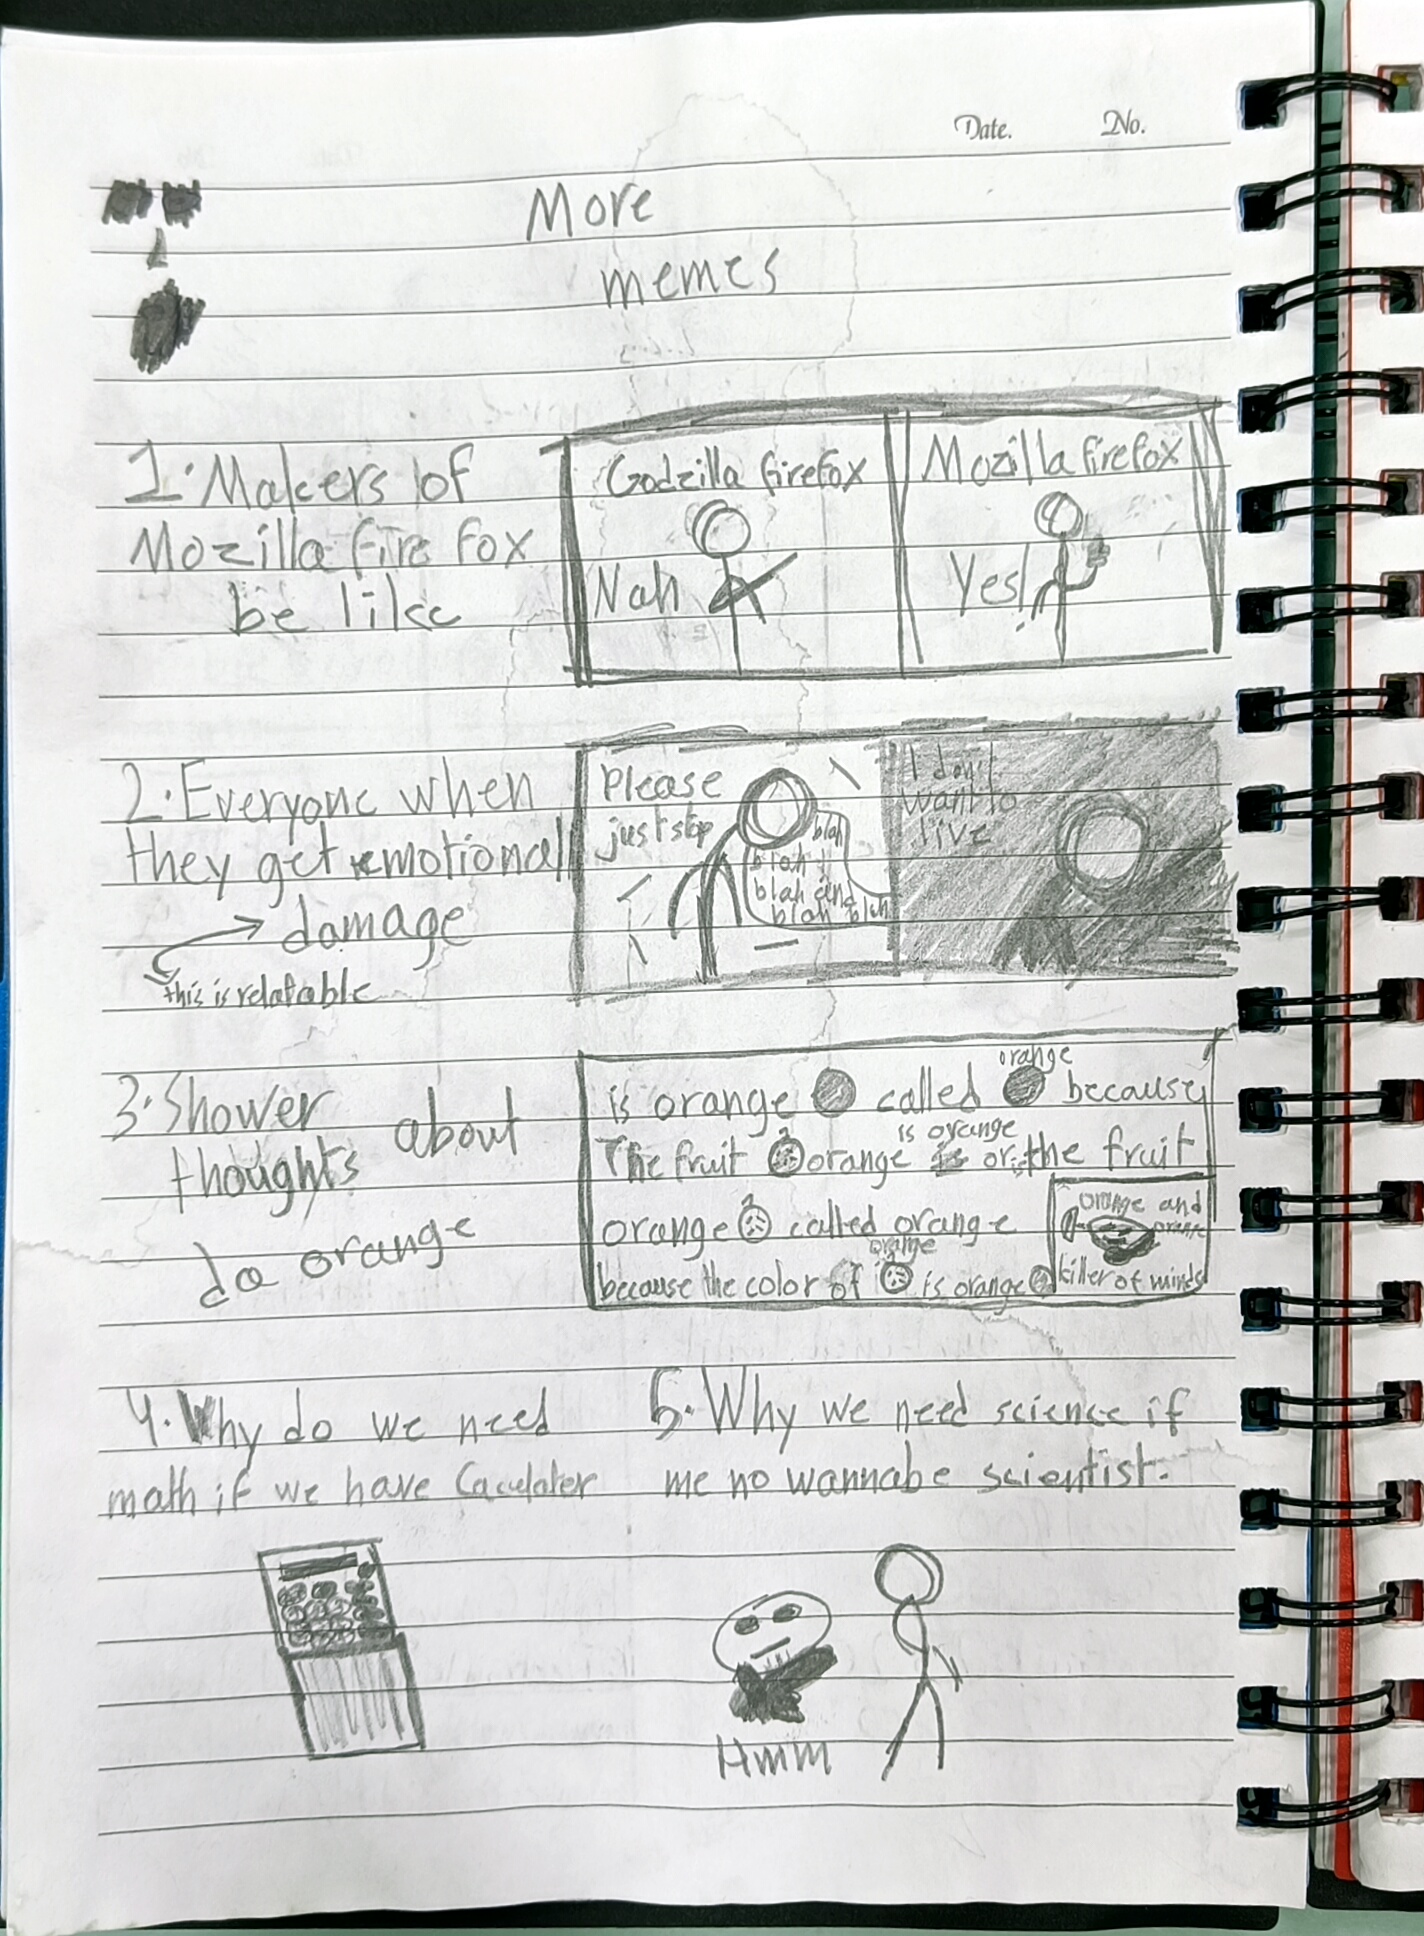 Date. No.
More
memes
1. Makers of
Mozilla fire fox
be like
Godzilla firefox
Nah
Mozilla firefox
Yes!
2. Everyone when
they get emotional
damage
this is relatable
Please
just stop
blah
blah
blah and
blah blah
I don't
want to
live
3. Shower
thoughts about
da orange
orange
is orange called because
is orange
The fruit orange is or the fruit
orange called orange
orange
because the color of is orange
orange and
orange
killer of minds
4. Why do we need
math if we have Caculater
5. Why we need science if
me no wannabe scientist.
Hmm